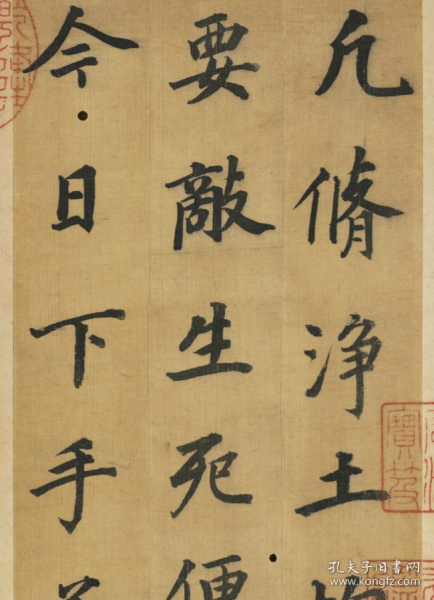 凢脩淨土
要敵生死便
今日下手
寶笈
孔夫子旧书网
www.kongfz.com